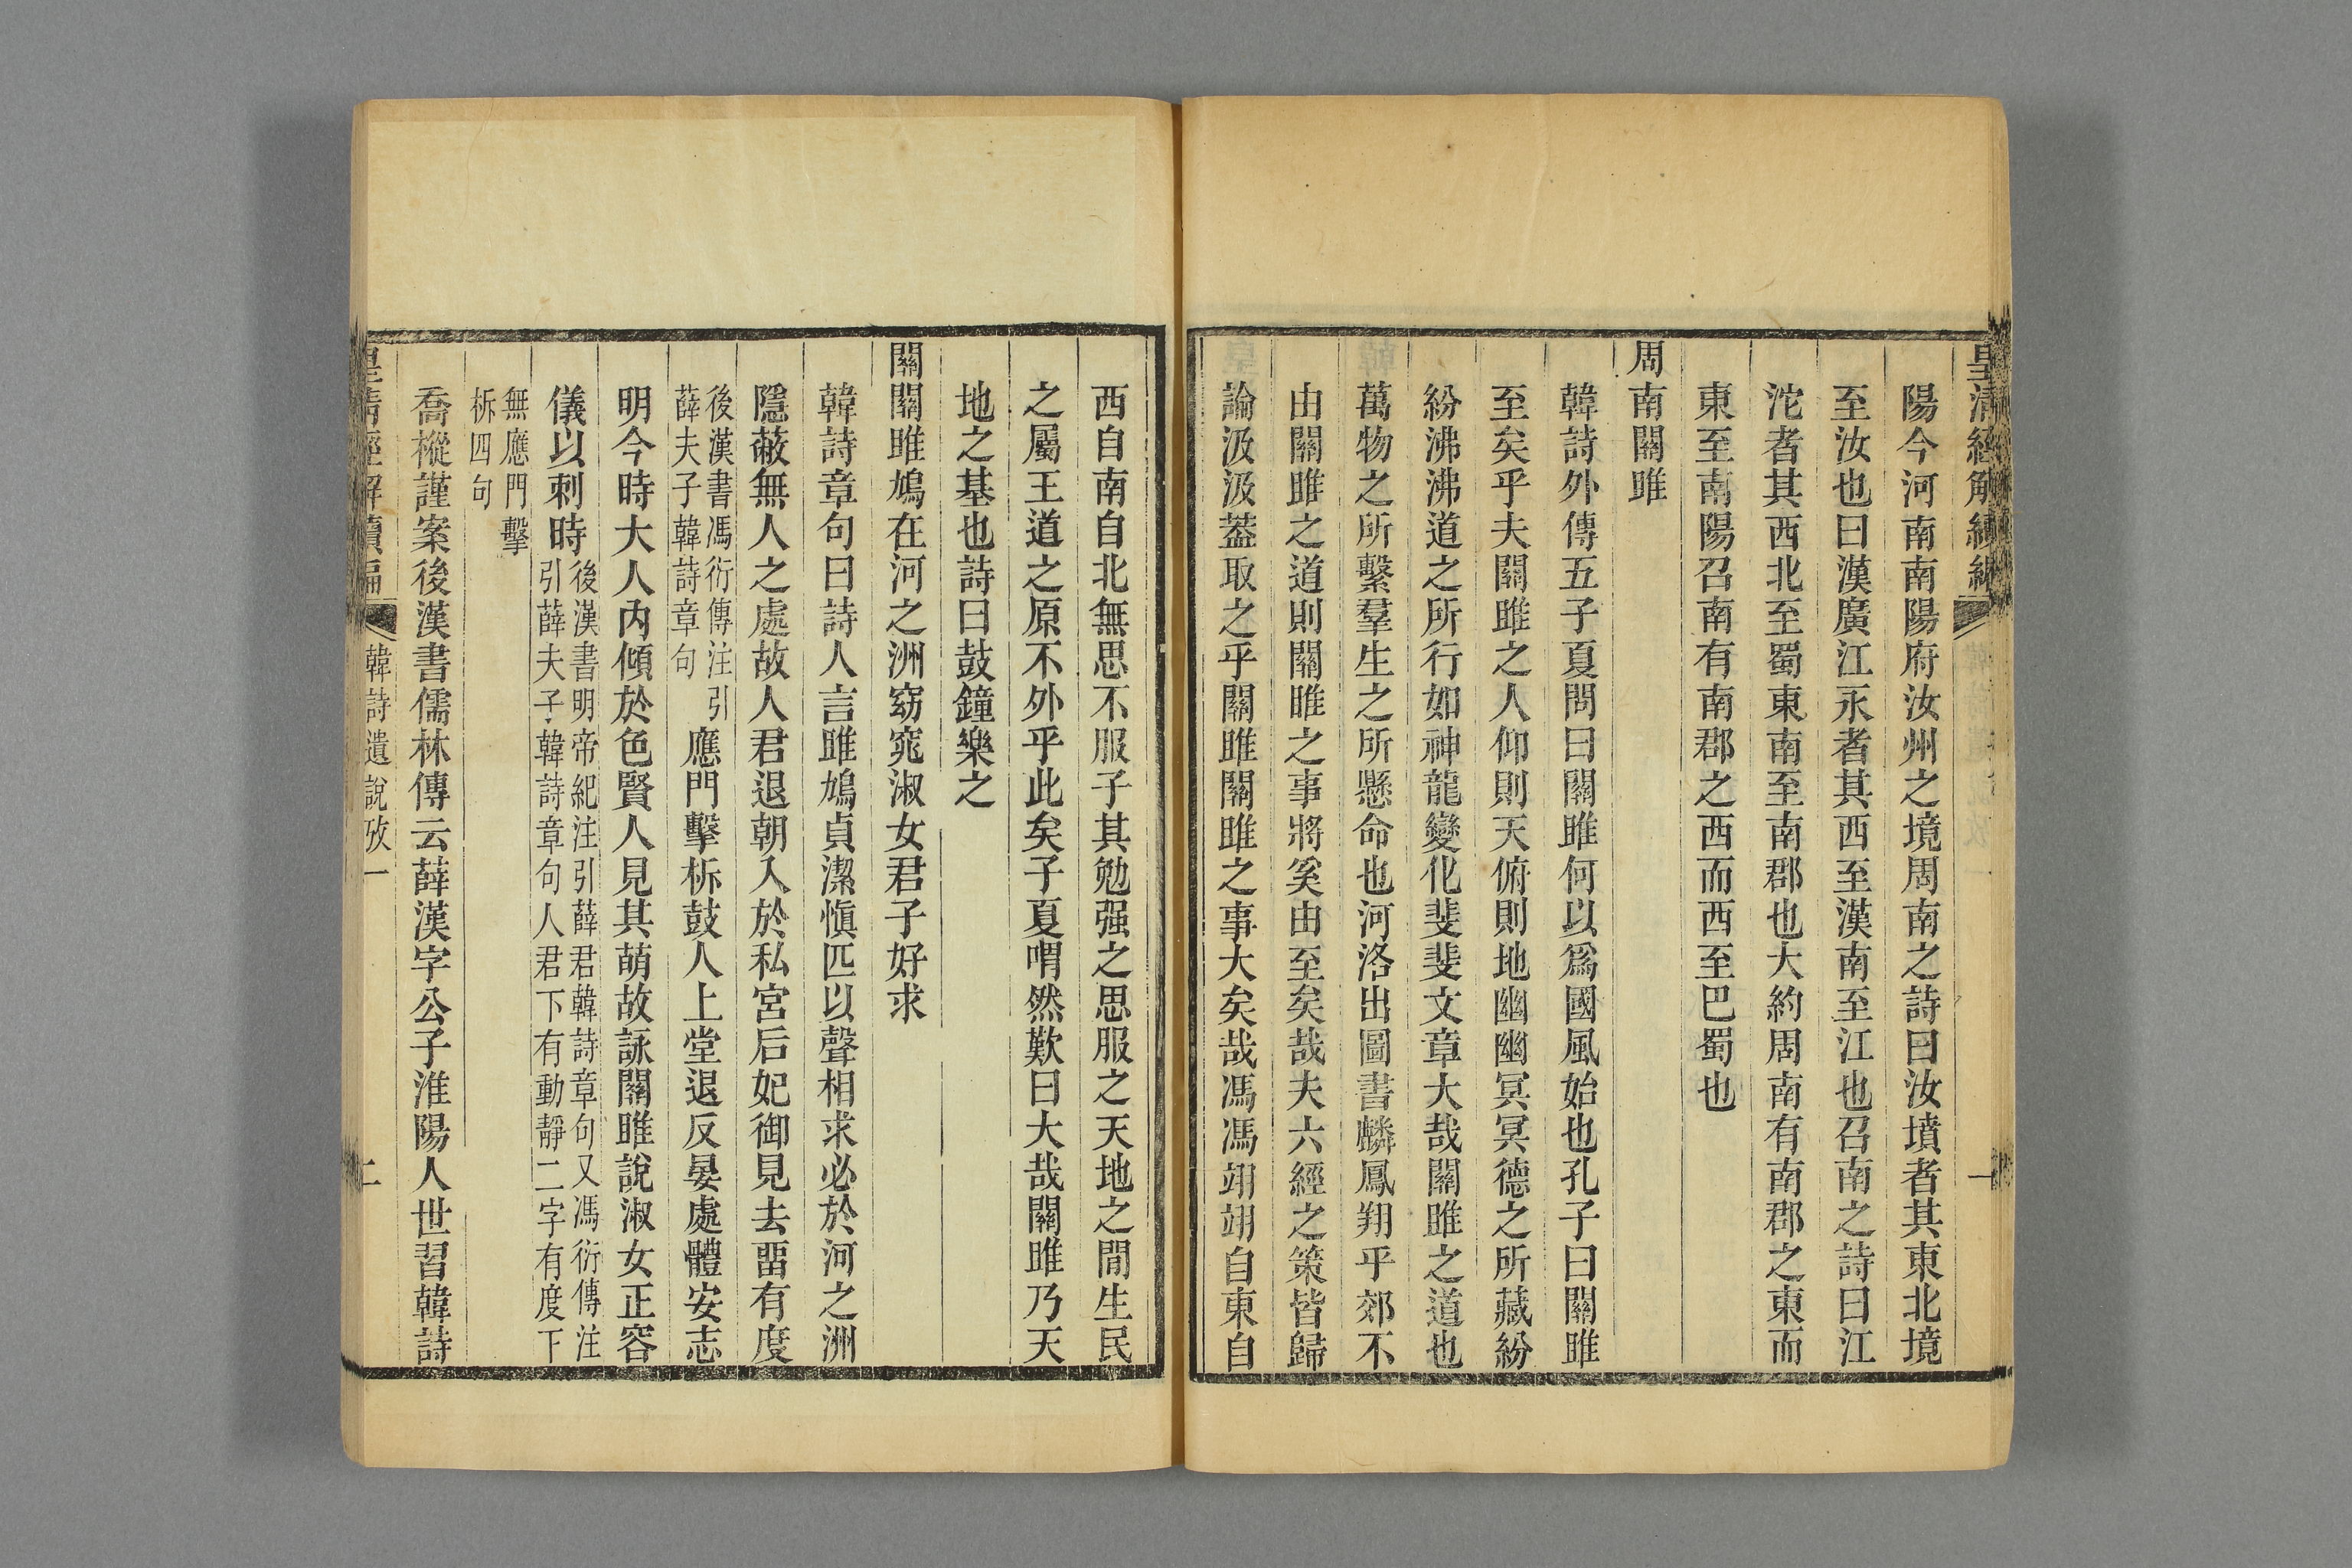 皇清經解續編
一
陽今河南南陽府汝州之境周南之詩曰汝墳者其東北境
至汝也曰漢廣江永者其西至漢南至江也召南之詩曰江
沱者其西北至蜀東南至南郡也大約周南有南郡之東而
東至南陽召南有南郡之西而西至巴蜀也
周南關雎
韓詩外傳五子夏問曰關雎何以爲國風始也孔子曰關雎
至矣乎夫關雎之人仰則天俯則地幽幽冥冥德之所藏紛
紛沸沸道之所行如神龍變化斐斐文章大哉關雎之道也
萬物之所繫羣生之所懸命也河洛出圖書麟鳳翔乎郊不
由關雎之道則關雎之事將奚由至矣哉夫六經之策皆歸
論汲汲葢取之乎關雎關雎之事大矣哉馮馮翊翊自東自
西自南自北無思不服子其勉强之思服之天地之閒生民
之屬王道之原不外乎此矣子夏喟然歎曰大哉關雎乃天
地之基也詩曰鼓鐘樂之
關關雎鳩在河之洲窈窕淑女君子好求
韓詩章句曰詩人言雎鳩貞潔愼匹以聲相求必於河之洲
隱蔽無人之處故人君退朝入於私宮后妃御見去畱有度
後漢書馮衍傳注引
薛夫子韓詩章句
應門擊柝鼓人上堂退反晏處體安志
明今時大人內傾於色賢人見其萌故詠關雎說淑女正容
儀以刺時
後漢書明帝紀注引薛君韓詩章句又馮衍傳注
引薛夫子韓詩章句人君下有動靜二字有度下
無應門擊
柝四句
喬樅謹案後漢書儒林傳云薛漢字公子淮陽人世習韓詩
皇清經解續編
韓詩遺說攷一
二